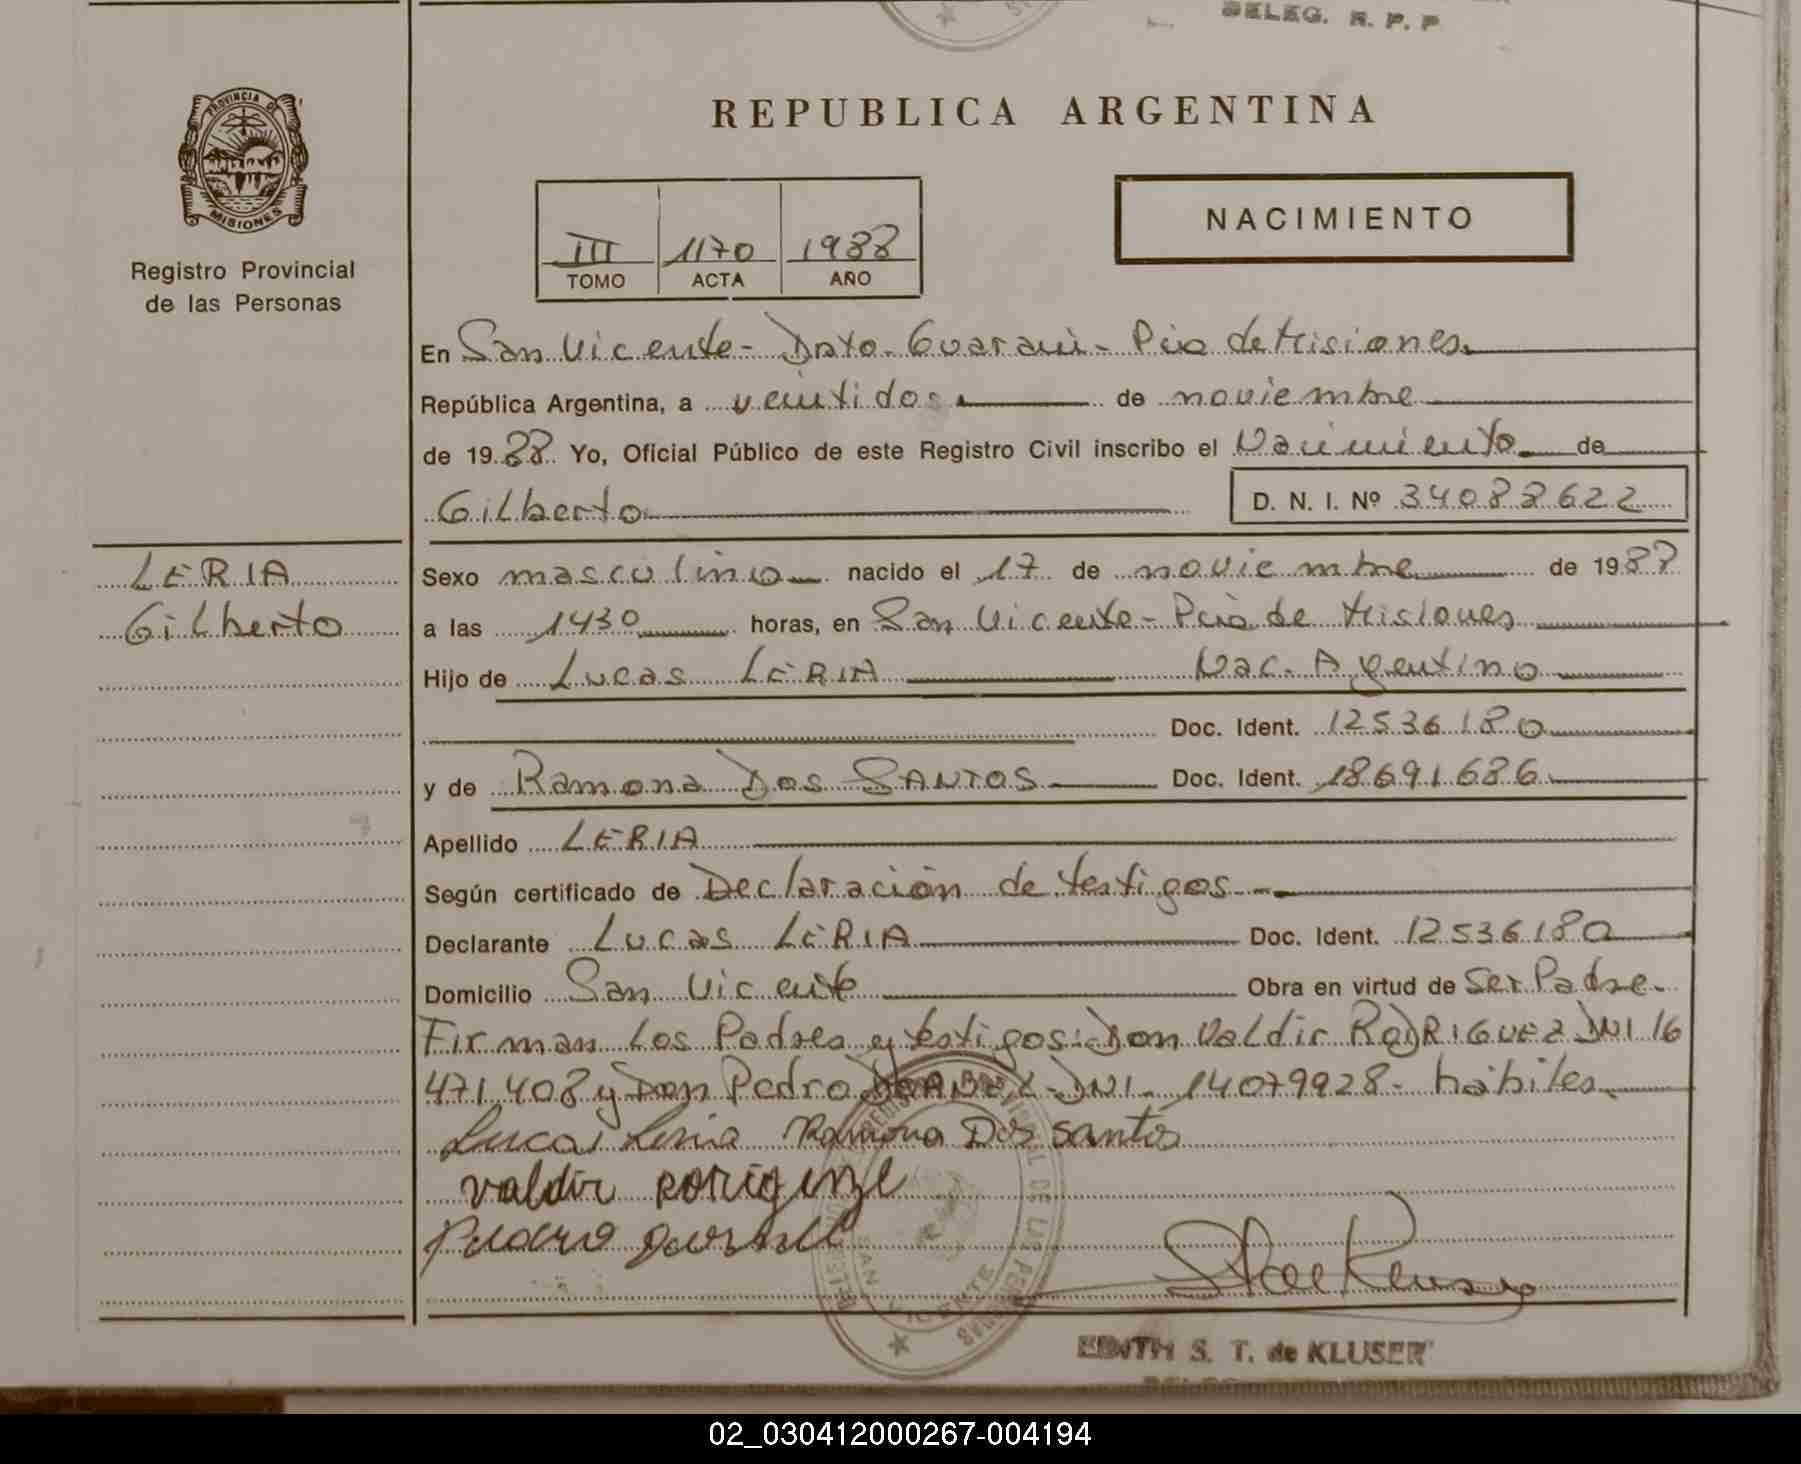 DELEG. R. P. P
PROVINCIA DE
MISIONES
Registro Provincial
de las Personas
REPUBLICA ARGENTINA
III 1170 1988
TOMO ACTA AÑO
NACIMIENTO
En San Vicente - Dpto. Guaraní - Pcia de Misiones
República Argentina, a veintidos de noviembre
de 1988 Yo, Oficial Público de este Registro Civil inscribo el Nacimiento de
Gilberto D. N. I. Nº 34088622
LERIA
Gilberto
Sexo masculino nacido el 17 de noviembre de 1988
a las 1430 horas, en San Vicente - Pcia de Misiones
Hijo de Lucas LERIA Nac. Argentino
Doc. Ident. 12536180
y de Ramona Dos SANTOS Doc. Ident. 18691686
Apellido LERIA
Según certificado de Declaración de testigos
Declarante Lucas LERIA Doc. Ident. 12536180
Domicilio San Vicente Obra en virtud de Ser Padre.
Firman los Padres y testigos: Don Valdir RODRIGUEZ DNI 16
471.408 y Don Pedro DNI. 14079928 - hábiles
Lucas Leria Ramona Dos santos
valdir
REGISTRO PROVINCIAL DE LAS PERSONAS
SAN VICENTE
EDITH S. T. de KLUSER
02_030412000267-004194